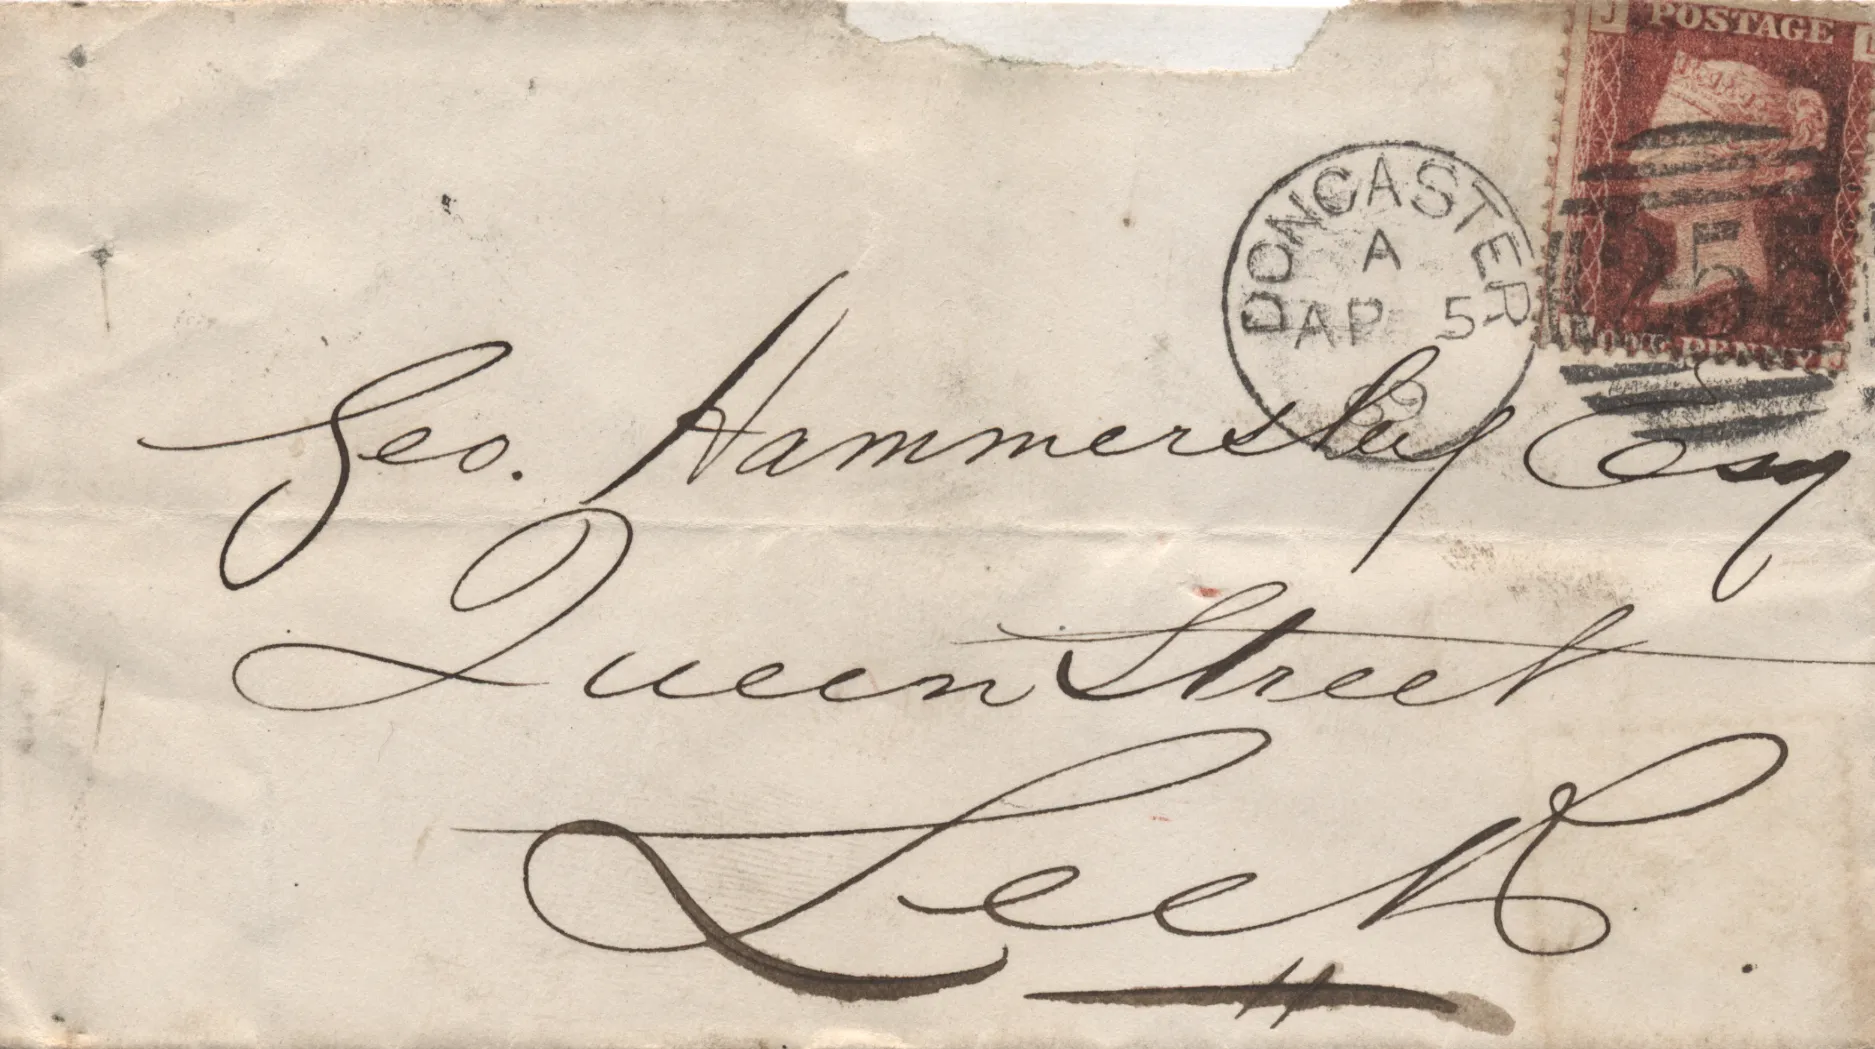 J POSTAGE
DONCASTER
A
AP 5
5
ONE PENNY
Geo. Hammersley Esq
Queen Street
Leek.